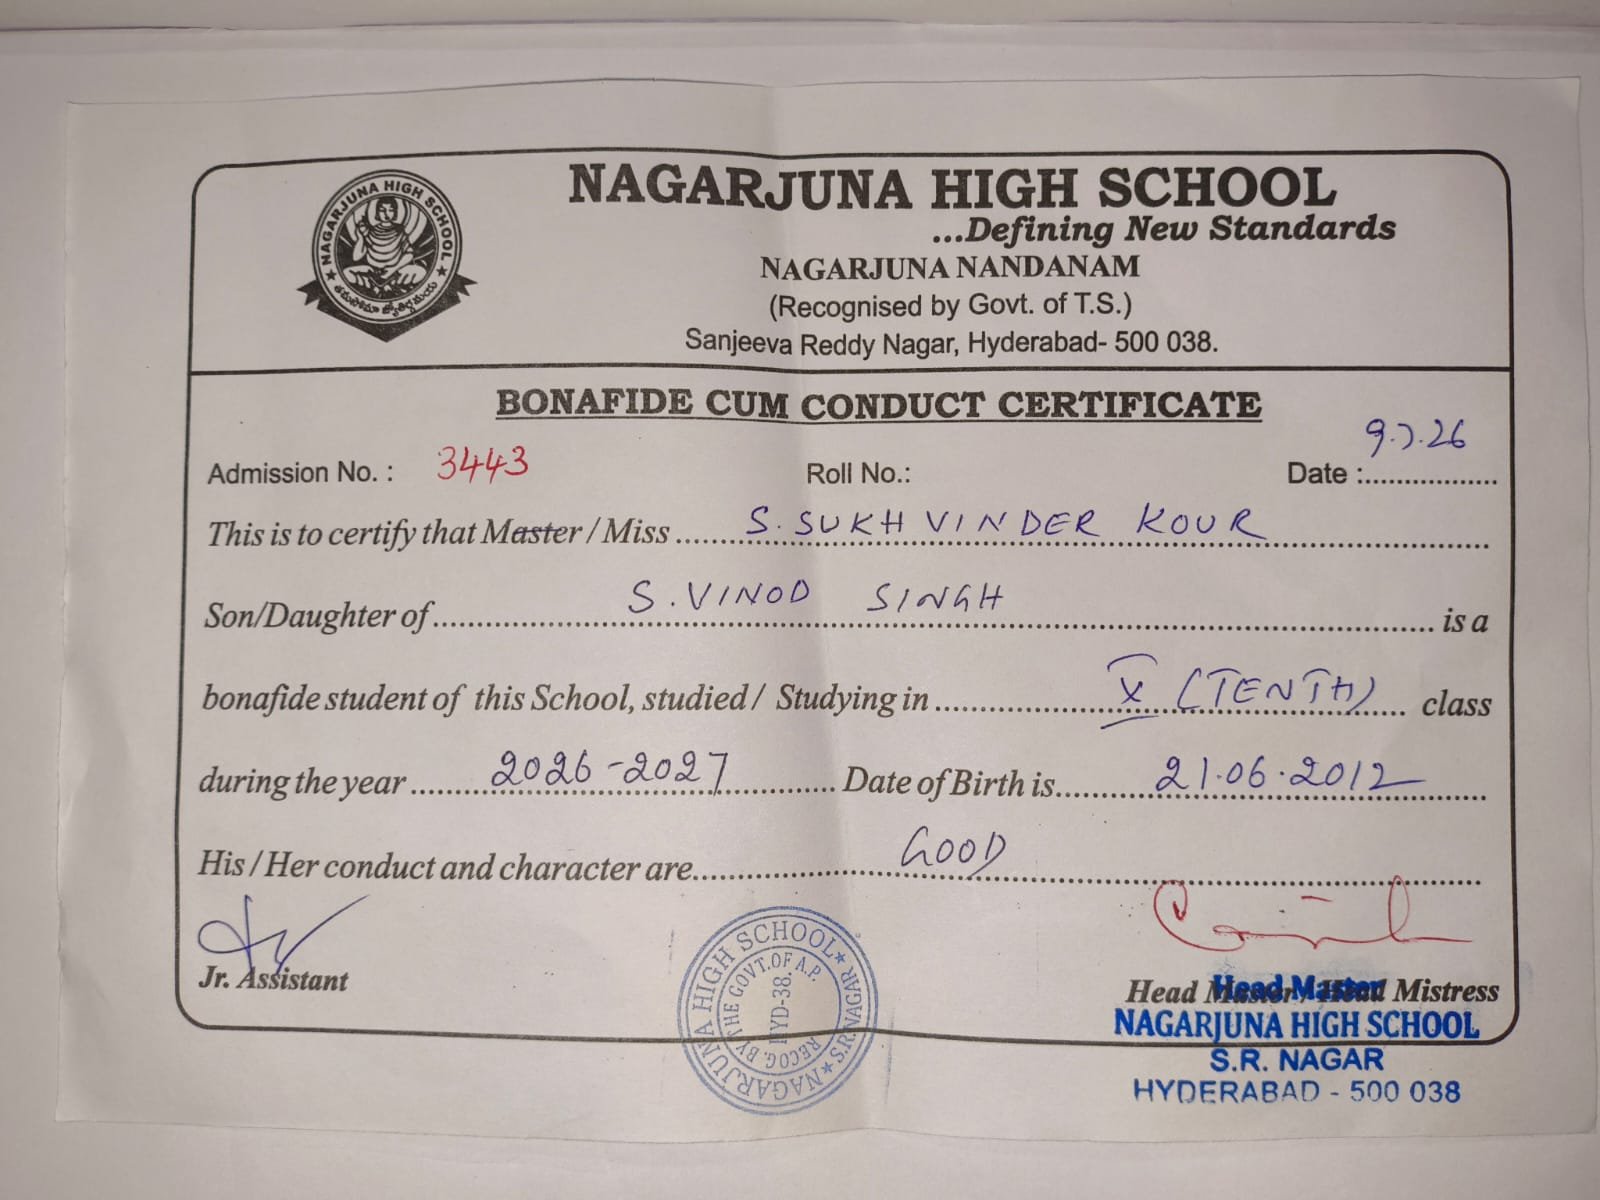 NAGARJUNA HIGH SCHOOL
...Defining New Standards
NAGARJUNA NANDANAM
(Recognised by Govt. of T.S.)
Sanjeeva Reddy Nagar, Hyderabad- 500 038.
NAGARJUNA HIGH SCHOOL
BONAFIDE CUM CONDUCT CERTIFICATE
Admission No. : 3443 Roll No.: Date : 9.7.26
This is to certify that Master / Miss S. SUKHVINDER KOUR
Son/Daughter of S. VINOD SINGH is a
bonafide student of this School, studied / Studying in X (TENTH) class
during the year 2026-2027 Date of Birth is 21.06.2012
His / Her conduct and character are GOOD
Jr. Assistant
NAGARJUNA HIGH SCHOOL ★ S.R. NAGAR ★
RECOG. BY THE GOVT. OF A.P.
HYD-38.
Head Master / Head Mistress
Head Master
NAGARJUNA HIGH SCHOOL
S.R. NAGAR
HYDERABAD - 500 038